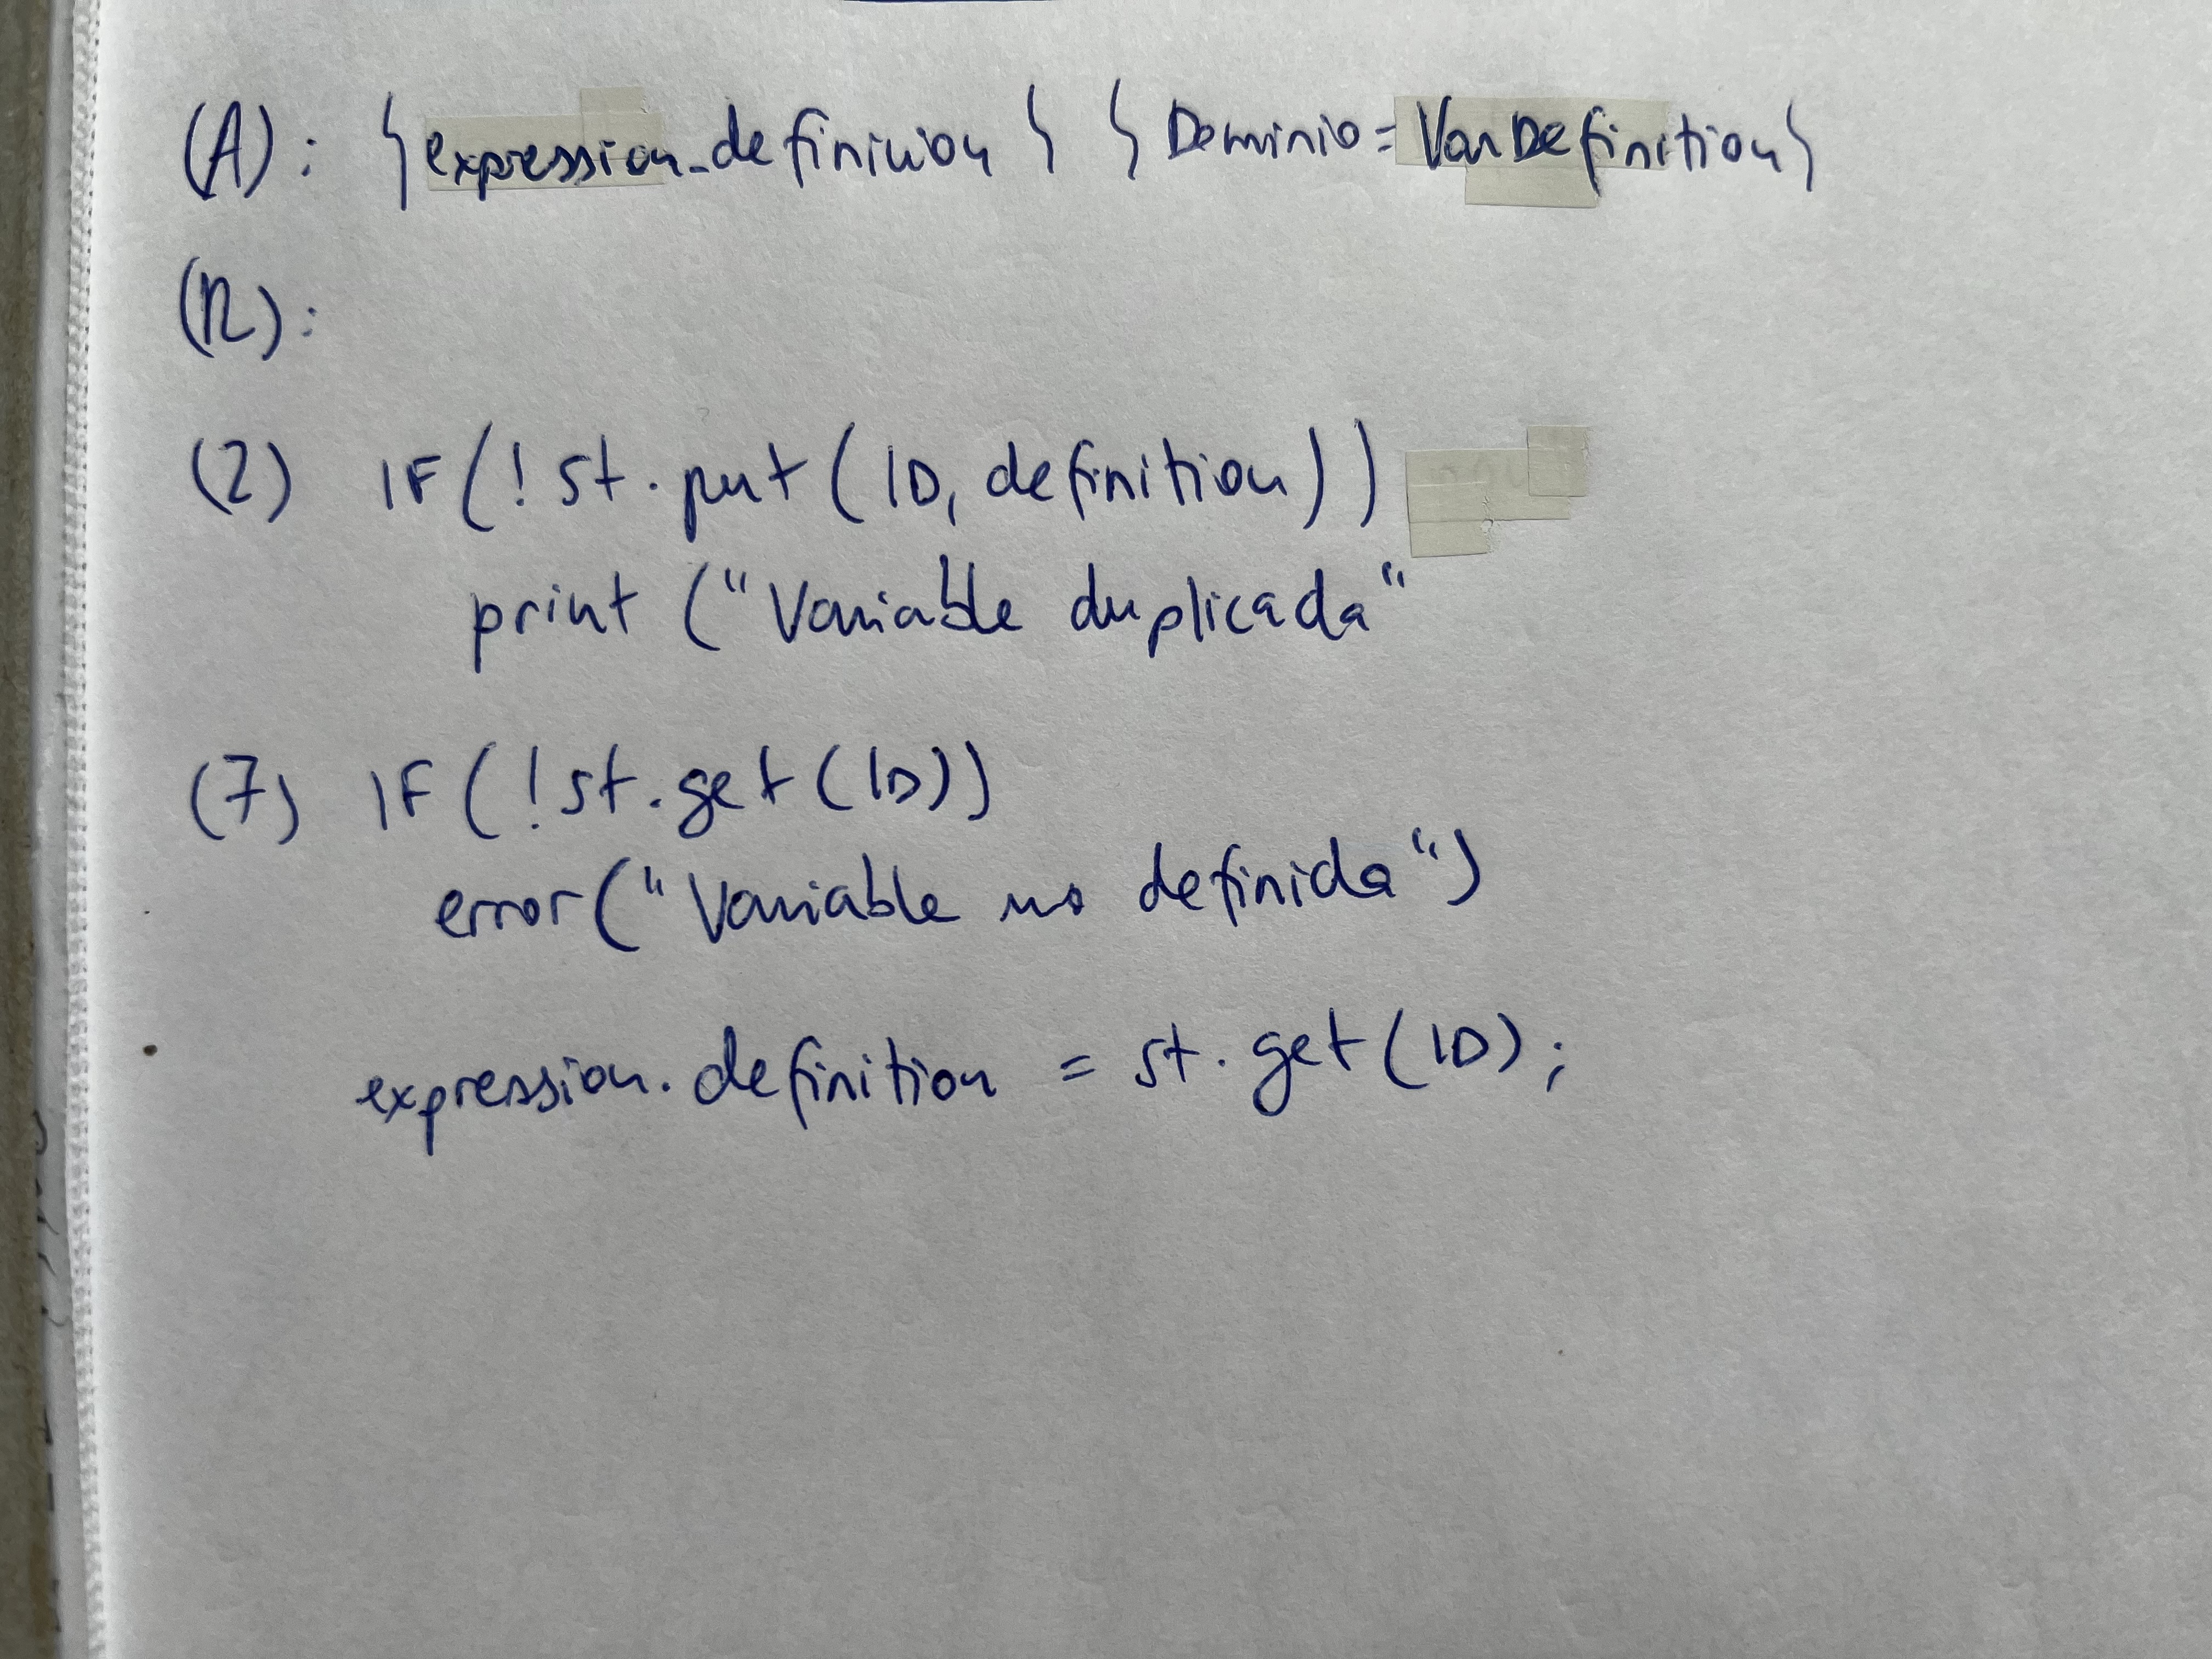 (A): {expression.definicion} {Dominio=VarDefinition}
(R):
(2) IF(!st.put(ID, definition))
print ("Variable duplicada"
(7) IF(!st.get(ID))
error("Variable no definida")
expression.definition = st.get(ID);